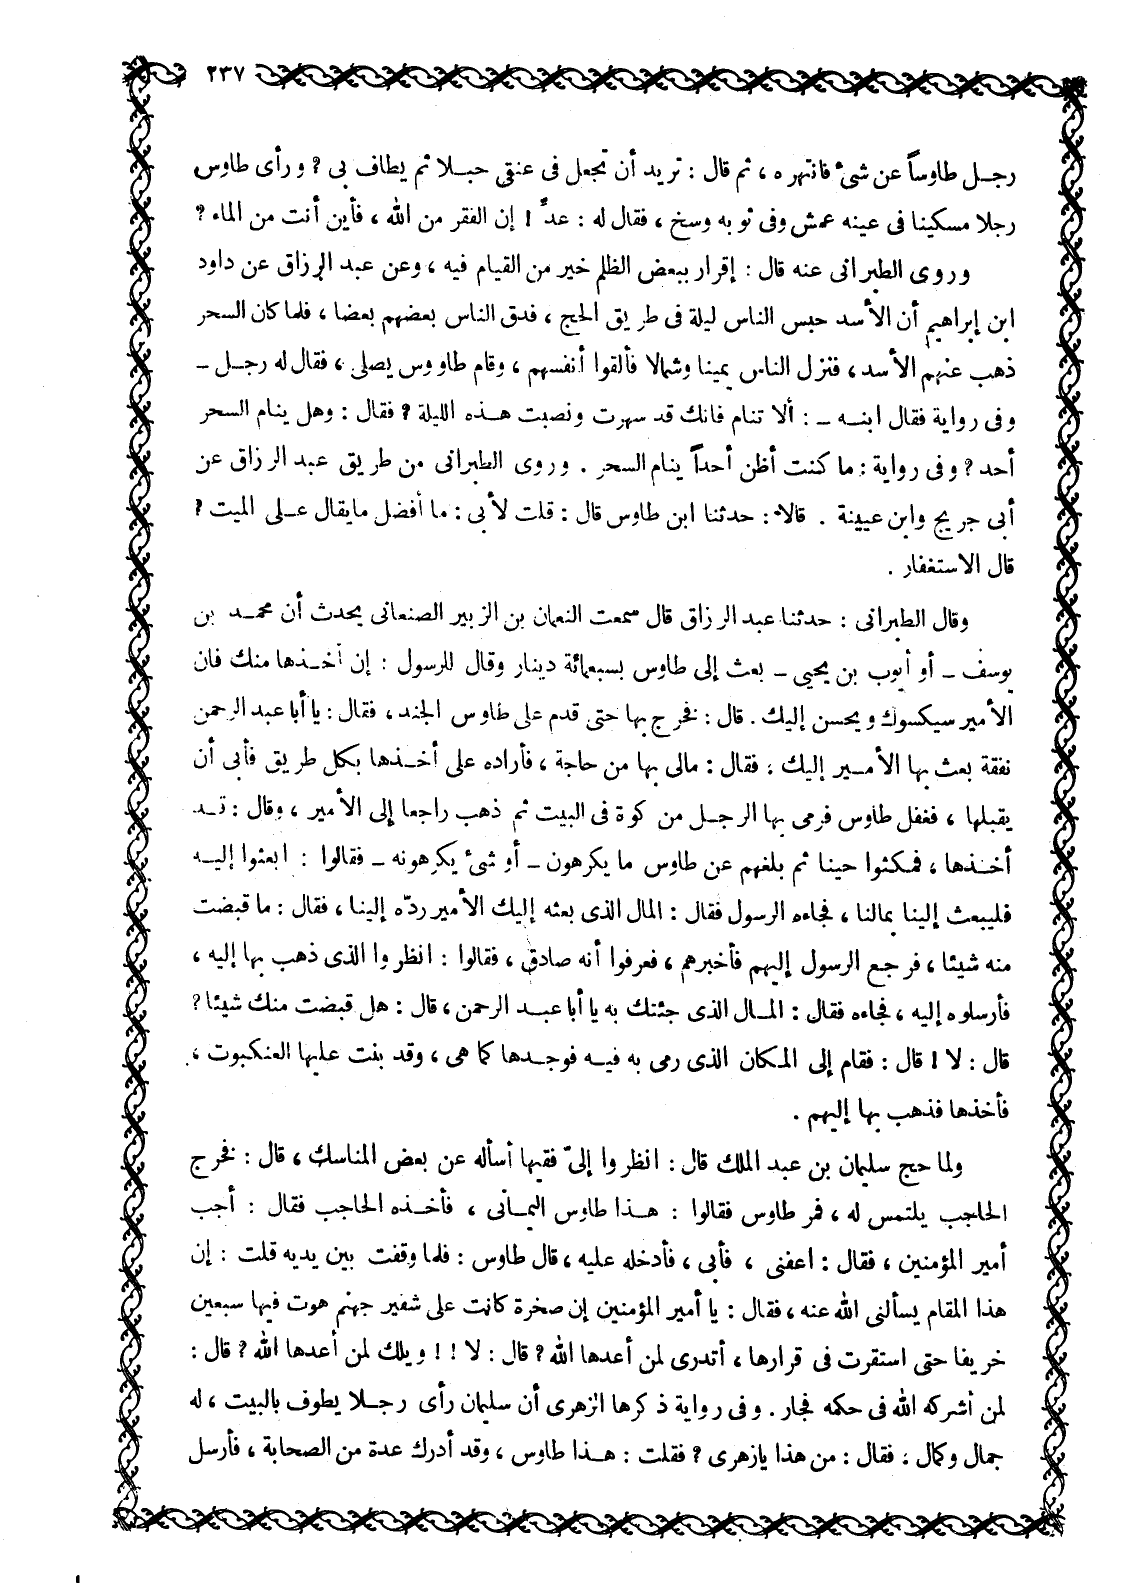 ٢٣٧
رجل طاوساً عن شىء فانتهره ، ثم قال : تريد أن تجعل فى عنقى حبلا ثم يطاف بى ؟ ورأى طاوس
رجلا مسكينا فى عينه عمش وفى ثوبه وسخ ، فقال له : عدّ ! إن الفقر من الله ، فأين أنت من الماء ؟
وروى الطبرانى عنه قال : إقرار ببعض الظلم خير من القيام فيه ، وعن عبد الرزاق عن داود
ابن إبراهيم أن الأسد حبس الناس ليلة فى طريق الحج ، فدق الناس بعضهم بعضا ، فلما كان السحر
ذهب عنهم الأسد ، فنزل الناس يمينا وشمالا فألقوا أنفسهم ، وقام طاووس يصلى ، فقال له رجل ـ
وفى رواية فقال ابنه ـ : ألا تنام فانك قد سهرت ونصبت هذه الليلة ؟ فقال : وهل ينام السحر
أحد ؟ وفى رواية : ما كنت أظن أحداً ينام السحر . وروى الطبرانى من طريق عبد الرزاق عن
أبى جريج وابن عيينة . قالا : حدثنا ابن طاوس قال : قلت لأبى : ما أفضل مايقال على الميت ؟
قال الاستغفار .
وقال الطبرانى : حدثنا عبد الرزاق قال سمعت النعمان بن الزبير الصنعانى يحدث أن محمد بن
يوسف ـ أو أيوب بن يحيى ـ بعث إلى طاوس بسبعمائة دينار وقال للرسول : إن أخذها منك فان
الأمير سيكسوك ويحسن إليك . قال : فخرج بها حتى قدم على طاوس الجند ، فقال : يا أبا عبد الرحمن
نفقة بعث بها الأمير إليك ، فقال : مالى بها من حاجة ، فأراده على أخذها بكل طريق فأبى أن
يقبلها ، فغفل طاوس فرمى بها الرجل من كوة فى البيت ثم ذهب راجعا إلى الأمير ، وقال : قد
أخذها ، فمكثوا حينا ثم بلغهم عن طاوس ما يكرهون ـ أو شىء يكرهونه ـ فقالوا : ابعثوا إليه
فليبعث إلينا بمالنا ، فجاءه الرسول فقال : المال الذى بعثه إليك الأمير ردّه إلينا ، فقال : ما قبضت
منه شيئا ، فرجع الرسول إليهم فأخبرهم ، فعرفوا أنه صادق ، فقالوا : انظروا الذى ذهب بها إليه ،
فأرسلوه إليه ، فجاءه فقال : المال الذى جئتك به يا أبا عبد الرحمن ، قال : هل قبضت منك شيئا ؟
قال : لا ! قال : فقام إلى المكان الذى رمى به فيه فوجدها كما هى ، وقد بنت عليها العنكبوت ،
فأخذها فذهب بها إليهم .
ولما حج سليمان بن عبد الملك قال : انظروا إلىّ فقيها أسأله عن بعض المناسك ، قال : فخرج
الحاجب يلتمس له ، فمر طاوس فقالوا : هذا طاوس اليمانى ، فأخذه الحاجب فقال : أجب
أمير المؤمنين ، فقال : اعفنى ، فأبى ، فأدخله عليه ، قال طاوس : فلما وقفت بين يديه قلت : إن
هذا المقام يسألنى الله عنه ، فقال : يا أمير المؤمنين إن صخرة كانت على شفير جهنم هوت فيها سبعين
خريفا حتى استقرت فى قرارها ، أتدرى لمن أعدها الله ؟ قال : لا !! ويلك لمن أعدها الله ؟ قال :
لمن أشركه الله فى حكمه فجار . وفى رواية ذكرها الزهرى أن سليمان رأى رجلا يطوف بالبيت ، له
جمال وكمال ، فقال : من هذا يازهرى ؟ فقلت : هذا طاوس ، وقد أدرك عدة من الصحابة ، فأرسل